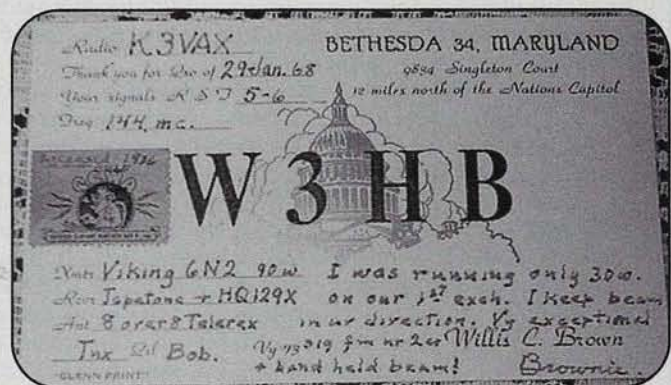 Radio K3VAX
BETHESDA 34, MARYLAND
Thank you for Qso of 29 Jan. 68
9824 Singleton Court
Your signals R S T 5-6
12 miles north of the Nations Capitol
Freq 144 mc.
Licensed 1926
W3HB
Xmtr Viking 6N2 90w I was running only 30w.
Rcvr Tapetone - r HQ129X on our 1st exch. I keep beam
Ant 8 over 8 Telerex in ur direction. Vy exceptional
Tnx Qsl Bob. Vy 73 fm nr 2er Willis C. Brown
+ hand held beam! Brownie.
"GLENN PRINT"